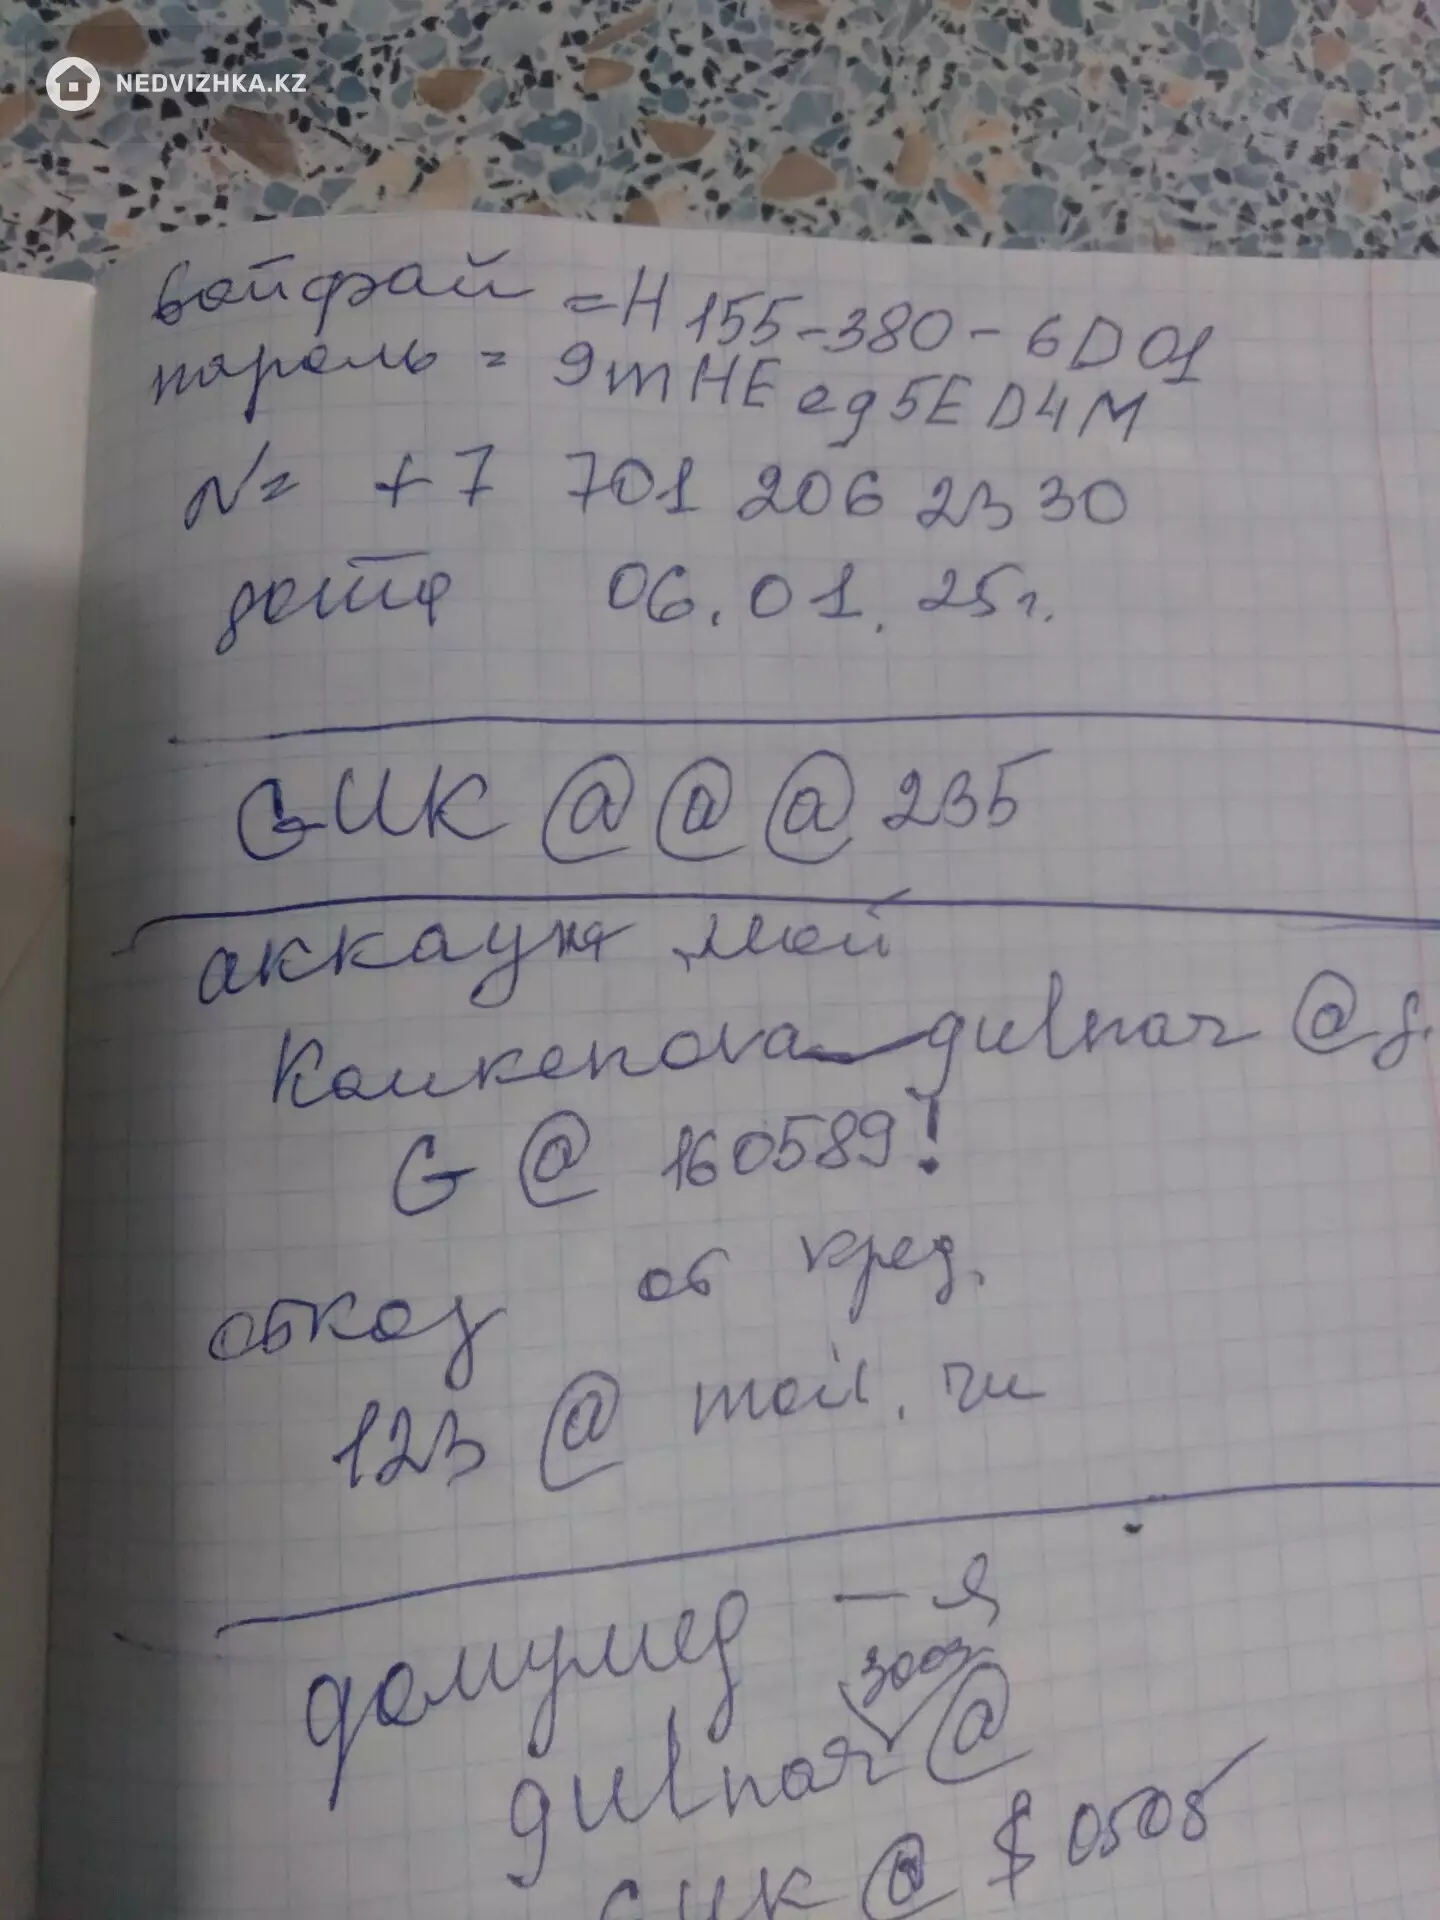 NEDVIZHKA.KZ
вайфай = H155-380-6D01
пароль = 9mHEeg5ED4M
N= +7 701 206 23 30
дата 06.01.25г.
GИК @@@ 235
аккаунт мой
Kaukenova_gulnar@g.
G@160589!
отказ от кред.
123@mail.ru
дамумед - я
3003
gulnar@
GИК@$0505